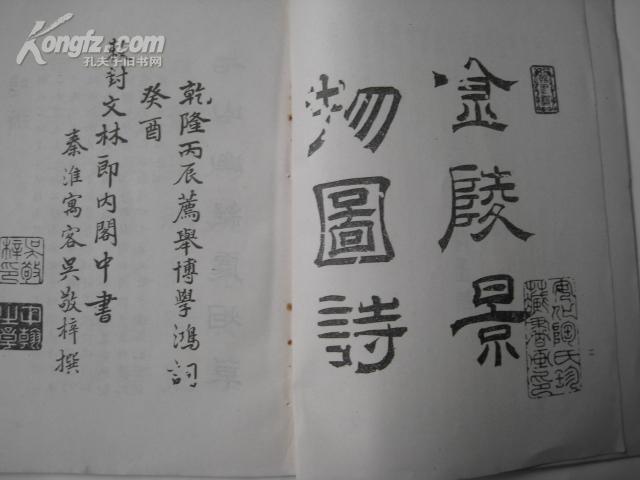 Kongfz.com
孔夫子旧书网
金陵景
物圖詩
乾隆丙辰薦舉博學鴻詞
癸酉
敕封文林郎内閣中書
秦淮寓客吳敬梓撰
吳敬
梓印